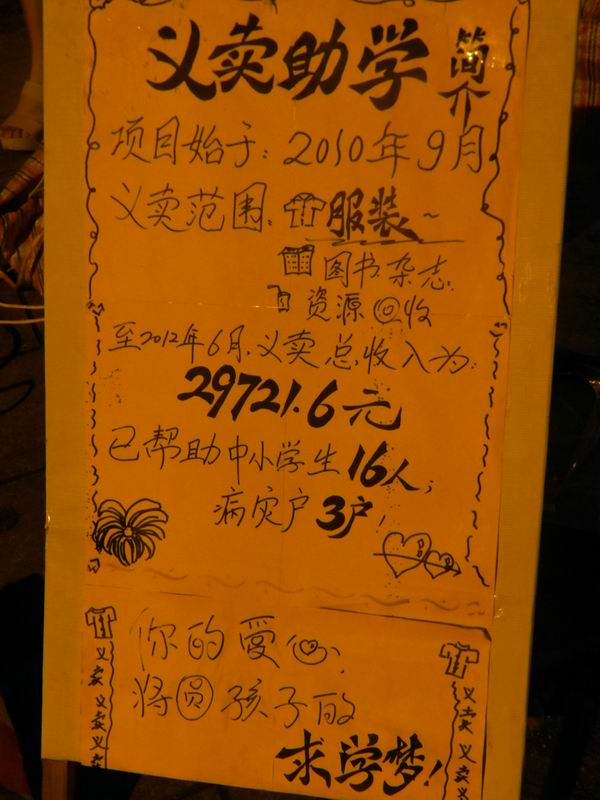 义卖助学简介
项目始于：2010年9月
义卖范围：服装~
图书杂志
资源回收
至2012年6月，义卖总收入为：
29721.6元
已帮助中小学生16人；
病灾户3户，
你的爱心，
将圆孩子的
求学梦！
义卖义卖义卖
义卖义卖